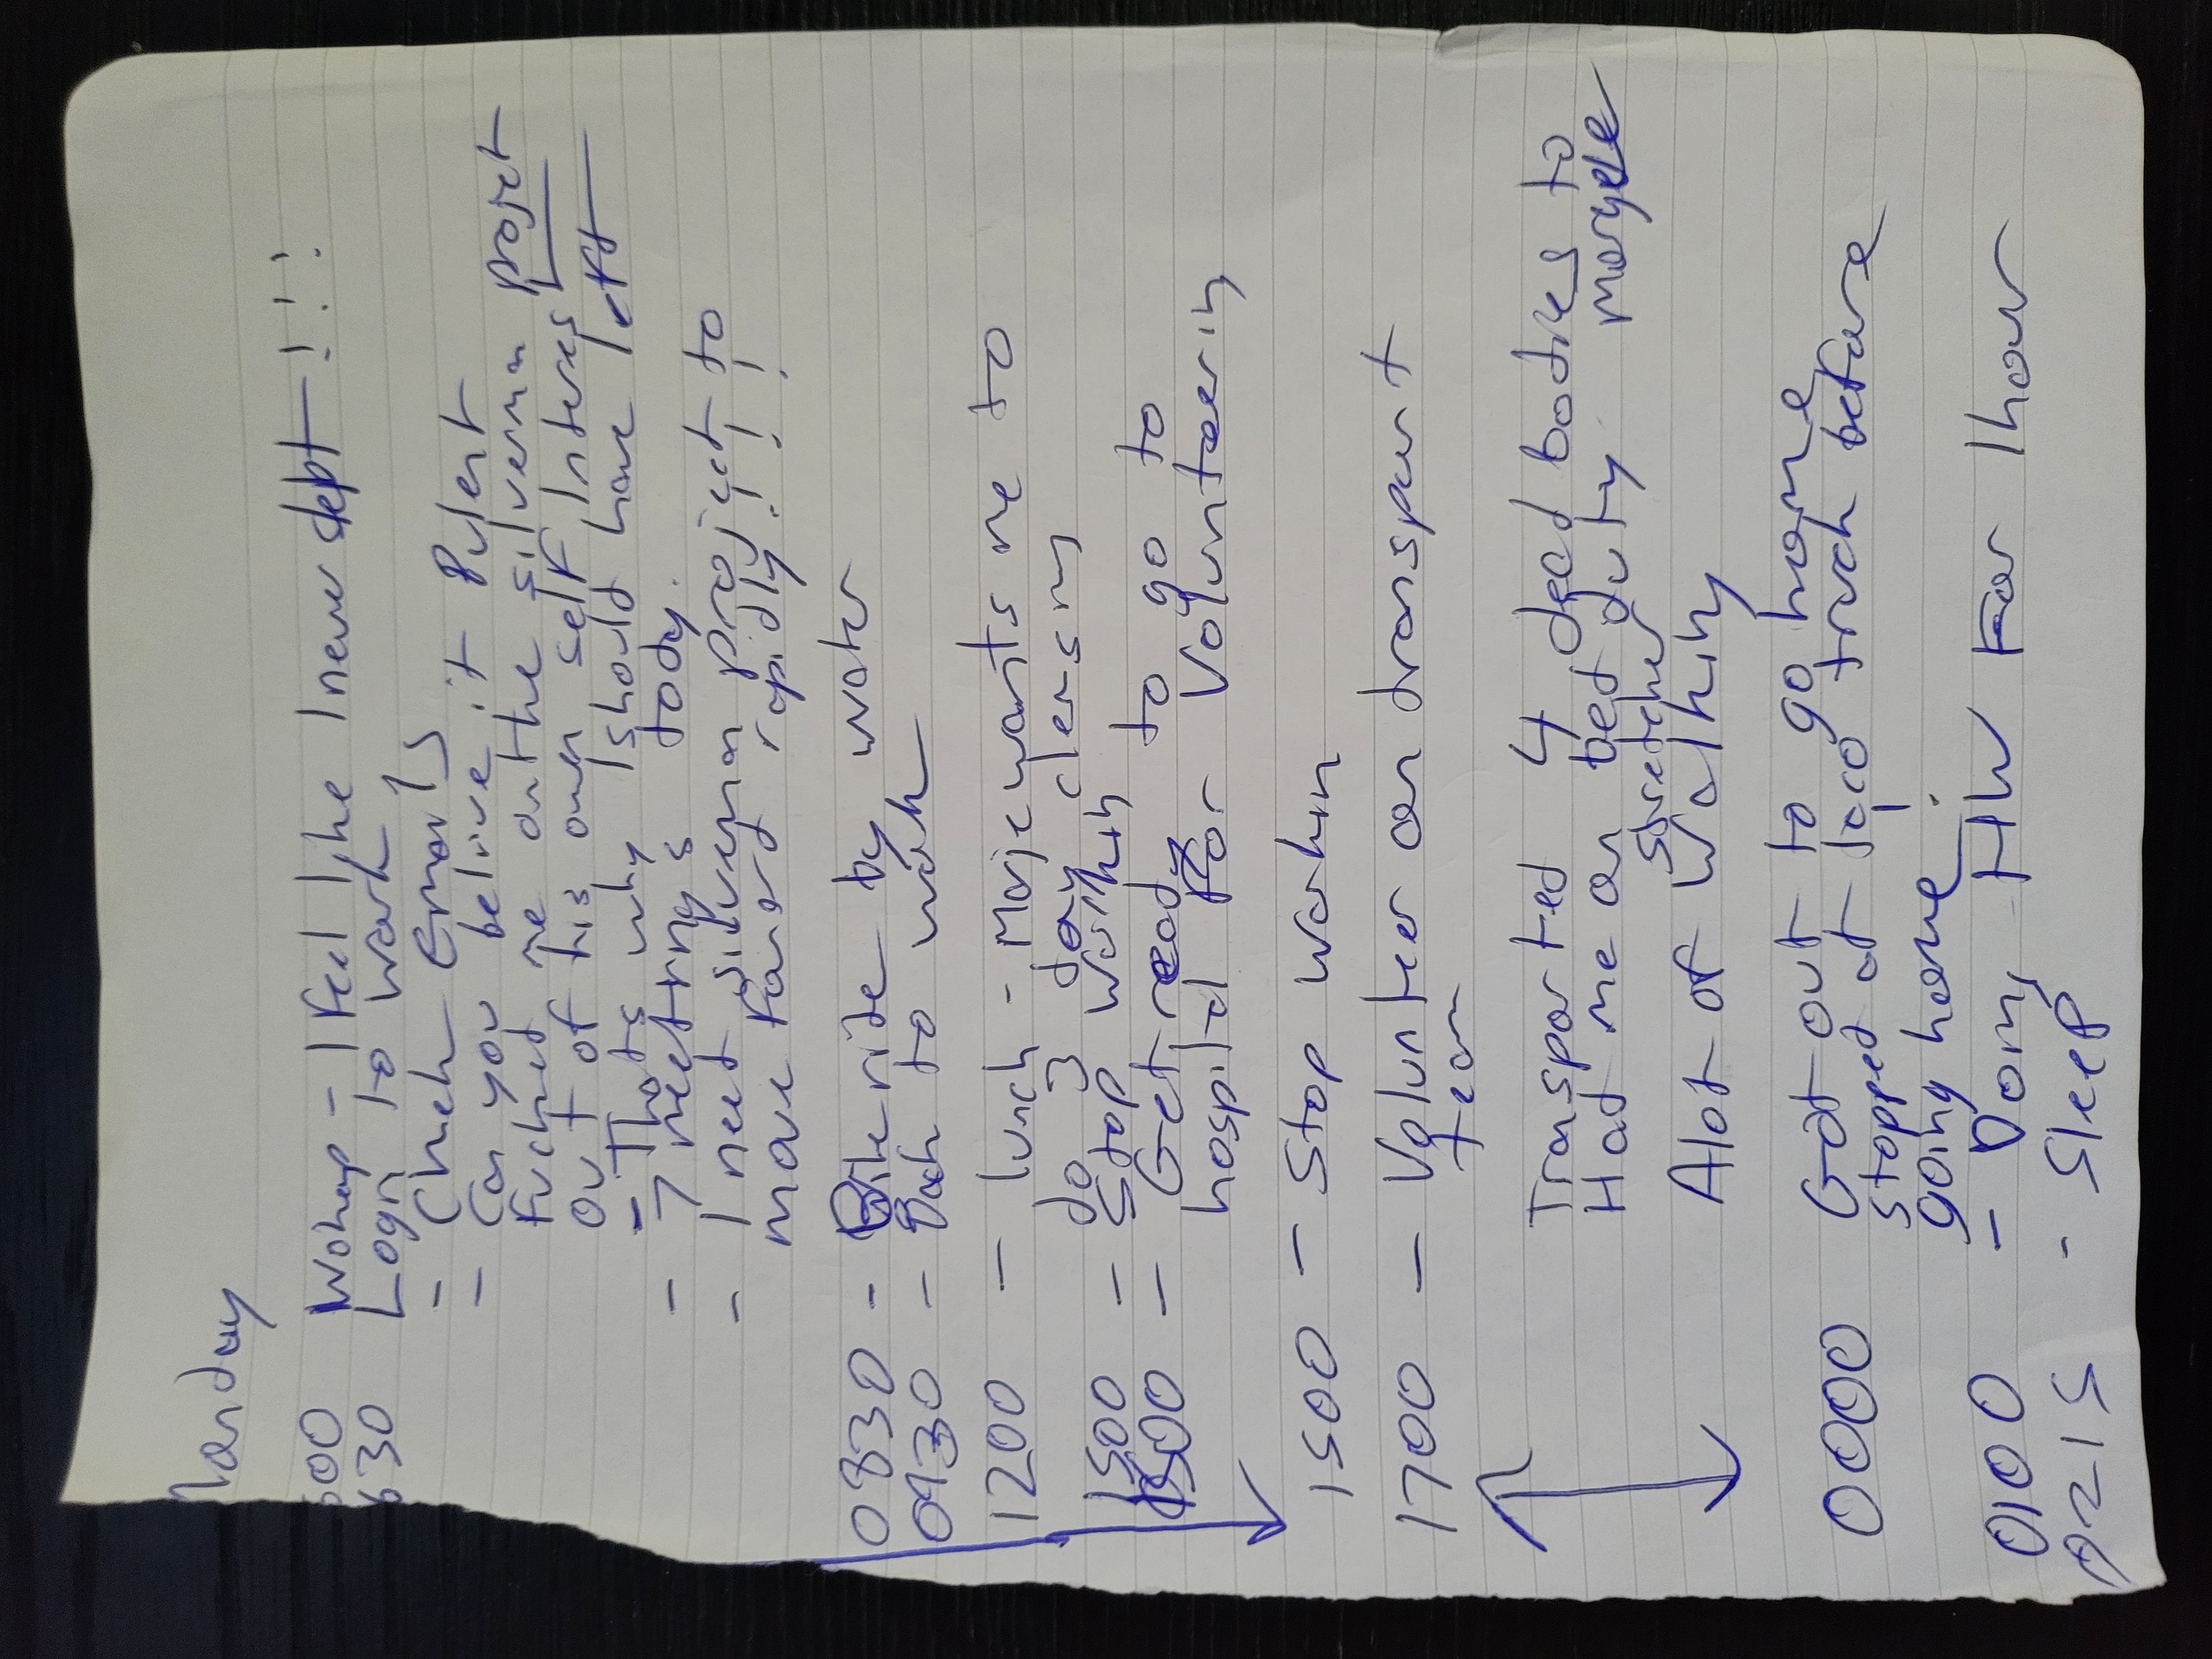 Monday
600 Wakeup - I feel like I never slept !!!
630 Login to work
- Check Emails
- Can you belive it
Fucked me on the silverman project
out of his own self Interest
- Thats why I should have left
- 7 meetings tody.
- I need silverman project to
move forard rapidly!!!
0830 - Bike ride by water
0930 - Back to work
1200 - lunch - Marje wants me to
do 3 day clensing
1500 - Stop Workin
1500 - Get ready to go to
hospital for Volunteering
1500 - Stop Workin
1700 - Volunteer on transport
team
Transported 4 dead bodies to
Had me on bed duty morgue
stretcher
Alot of Walking
0000 Got out to go home
stopped at taco truck before
going home!
0100 - Doing HW For 1 hour
0215 - Sleep